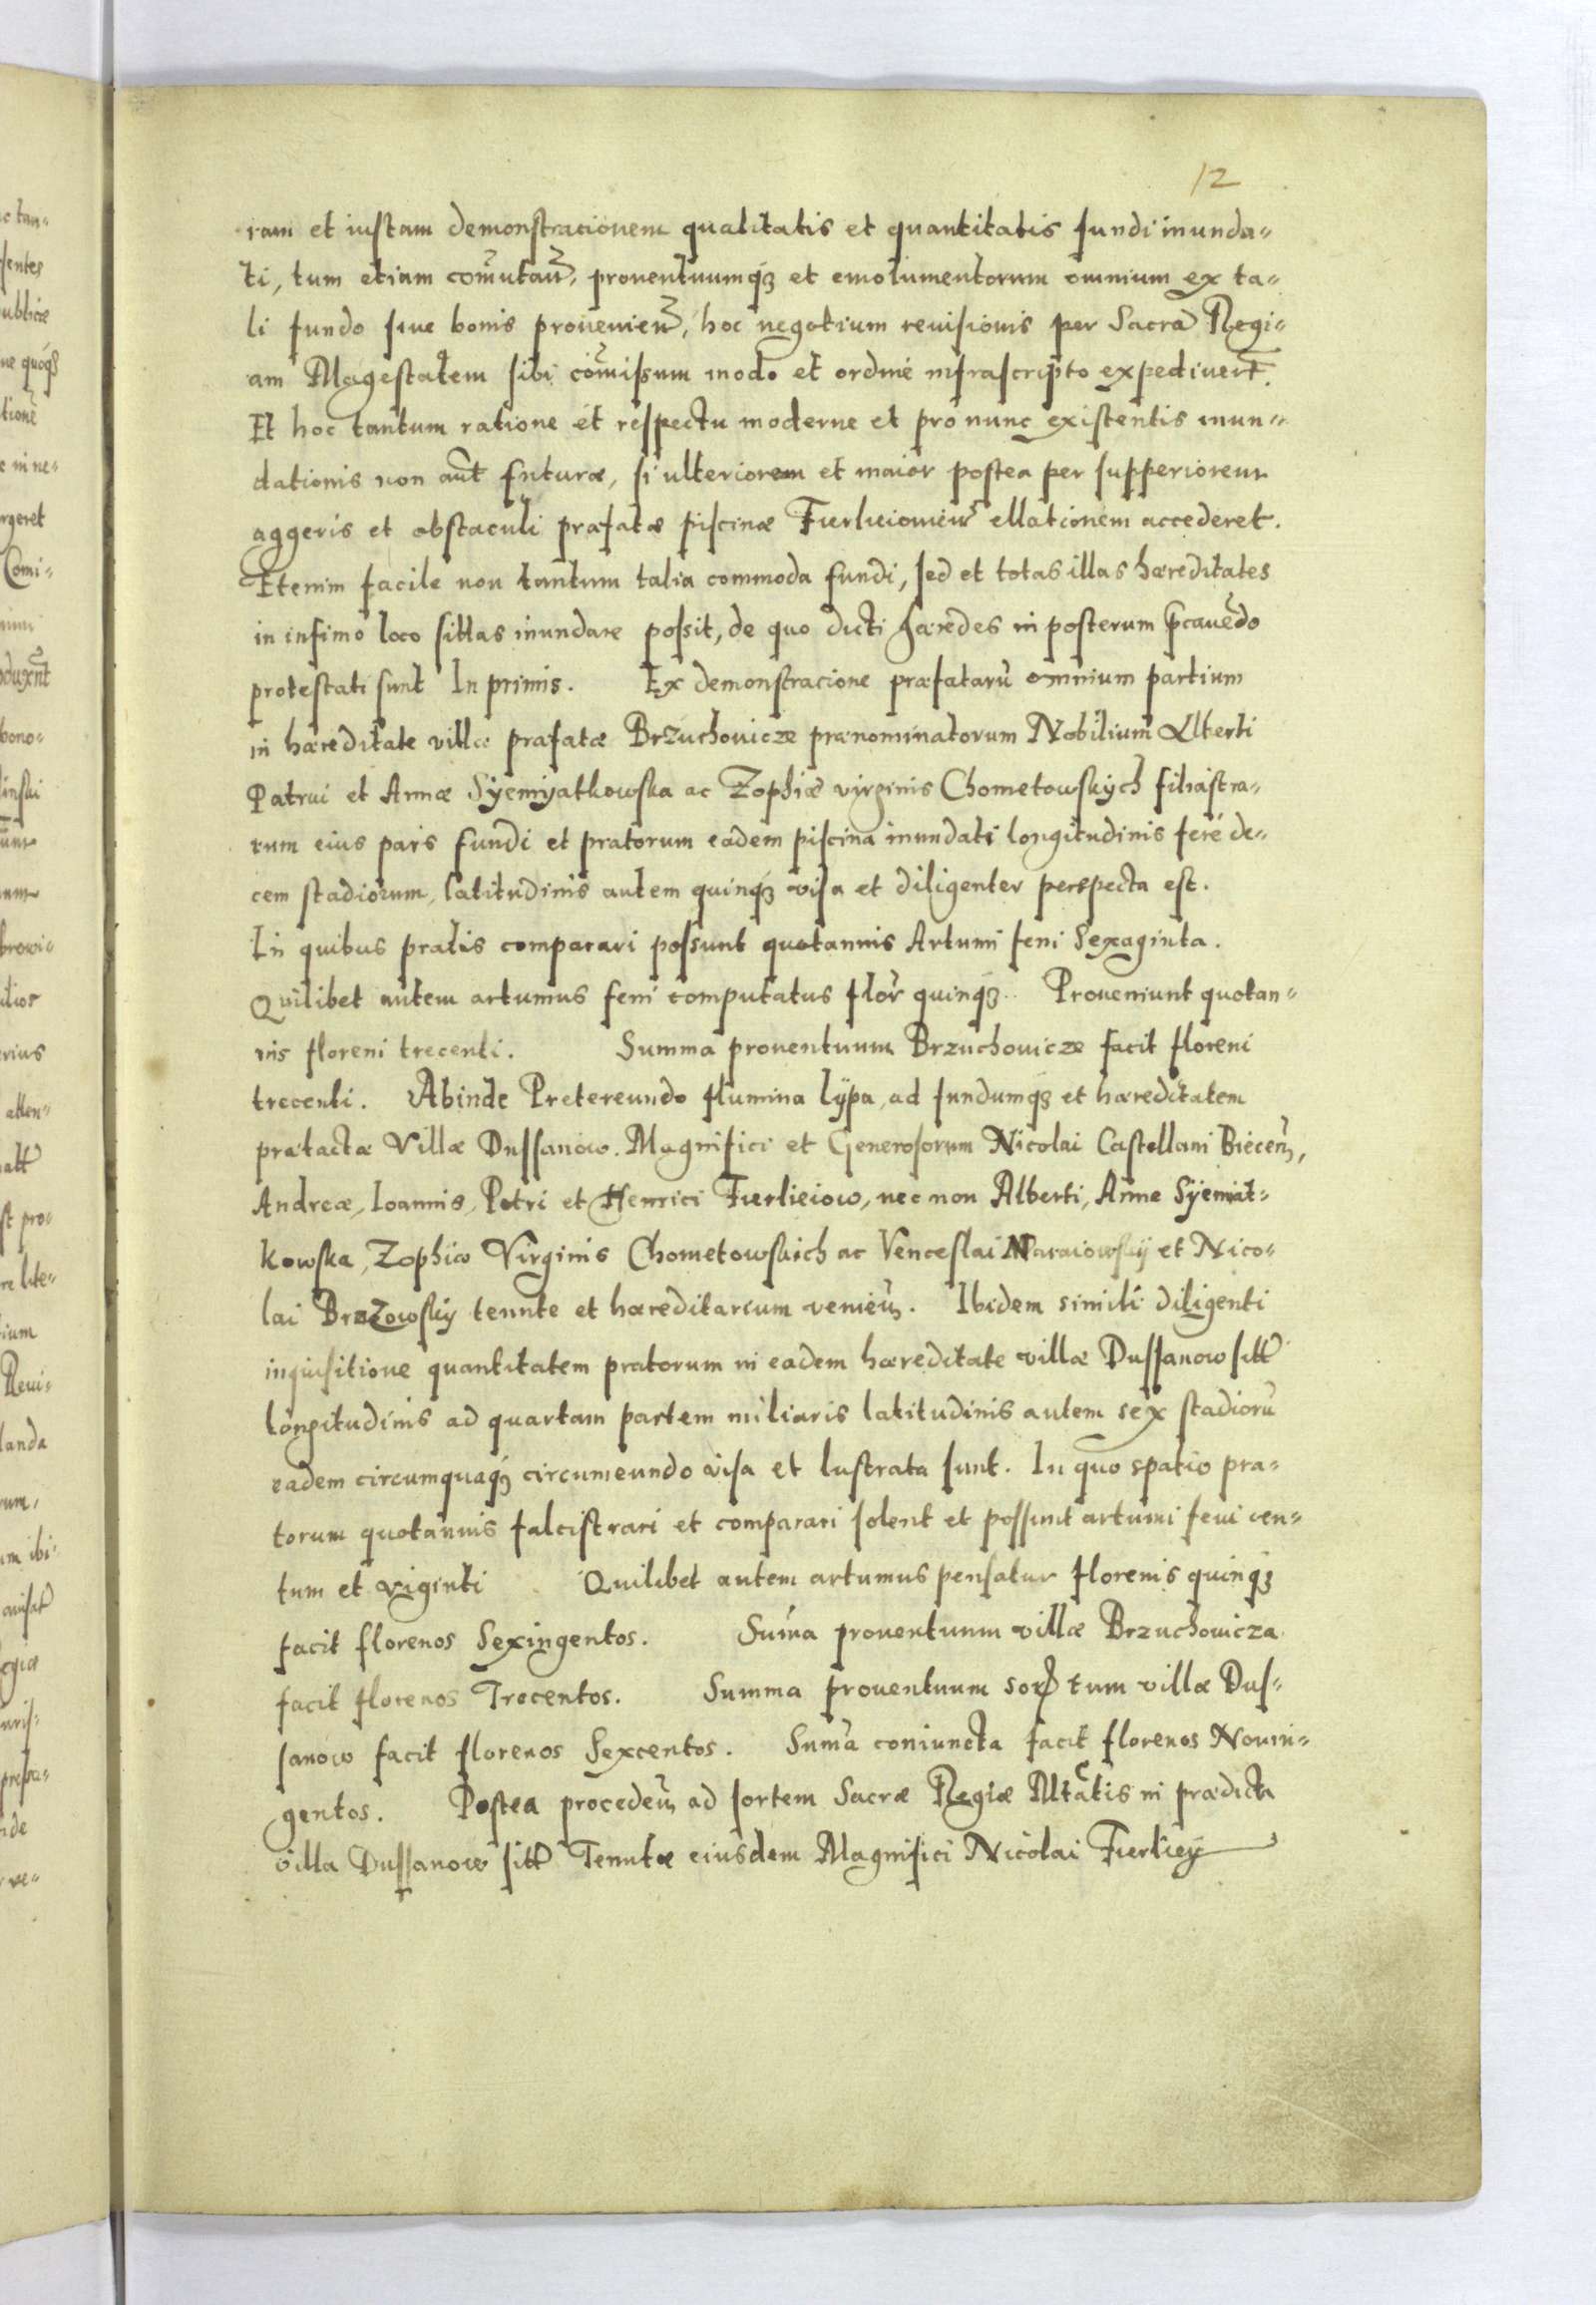 12
ram et iustam demonstracionem qualitatis et quantitatis fundi inunda-
ti, tum etiam com̃utan̄, prouentuumq3 et emolumentorum omnium ex ta-
li fundo siue bonis prouenien̄, hoc negotium reuisionis per Sacrã Regi-
am Magestatem sibi com̃issum modo et ordine infrascripto expediuer̄t.
Et hoc tantum ratione et respectu moderne et pro nunc existentis inun-
dationis non aũt futuræ, si ulteriorem et maior postea per supperiorem
aggeris et obstaculi præfatæ piscinæ Fierlieiowien̄ ellationem accederet.
Etenim facile non tantum talia commoda fundi, sed et totas illas hæreditates
in infimo loco sittas inundare possit, de quo dicti Hæredes in posterum p̄cauẽdo
protestati sunt In primis. Ex demonstracione præfatarũ omnium partium
in hæreditate villæ præfatæ Brzuchouicze prænominatorum Nobilium Alberti
Patrui et Annæ Syemyatkowska ac Zophiæ virginis Chometowskych filiastra-
rum eius pars fundi et pratorum eadem piscina inundati longitudinis fere de-
cem stadiorum, latitudinis autem quinq3 visa et diligenter perspecta est.
In quibus pratis comparari possunt quotannis Artumi feni Sexaginta.
Quilibet autem artumus feni computatus flor̃ quinq3. Proueniunt quotan-
nis floreni trecenti. Summa prouentuum Brzuchouicze facit floreni
trecenti. Abinde Pretereundo flumina lypa, ad fundumq3 et hæreditatem
prætactæ Villæ Dussanow. Magnifici et Generosorum Nicolai Castellani Biecen̄,
Andreæ, Ioannis, Petri et Henrici Fierlieiow, nec non Alberti, Anne Syemiat-
kowska, Zophiæ Virginis Chometowskich ac Venceslai Naraiowskij et Nico-
lai Brzozowskij tennte et hæreditarium venien̄. Ibidem simili diligenti
inquisitione quantitatem pratorum in eadem hæreditate villæ Dussanow sitt
longitudinis ad quartam partem miliaris latitudinis autem sex stadiorũ
eadem circumquaq3 circumeundo visa et lustrata sunt. In quo spatio pra-
torum quotannis falcistrari et comparari solent et possunt artumi feni cen-
tum et viginti Quilibet autem artumus pensatur florenis quinq3
facit florenos Sexingentos. Sum̃a prouentuum villæ Brzuchouicza
facit florenos Trecentos. Summa prouentuum tum villæ Dus-
sanow facit florenos Sexcentos. Sum̃a coniuncta facit florenos Nonin-
gentos. Postea proceden̄ ad sortem Sacræ Regiæ Mtatis in prædicta
villa Dussanow sitt Tenutæ eiusdem Magnifici Nicolai Fierliey